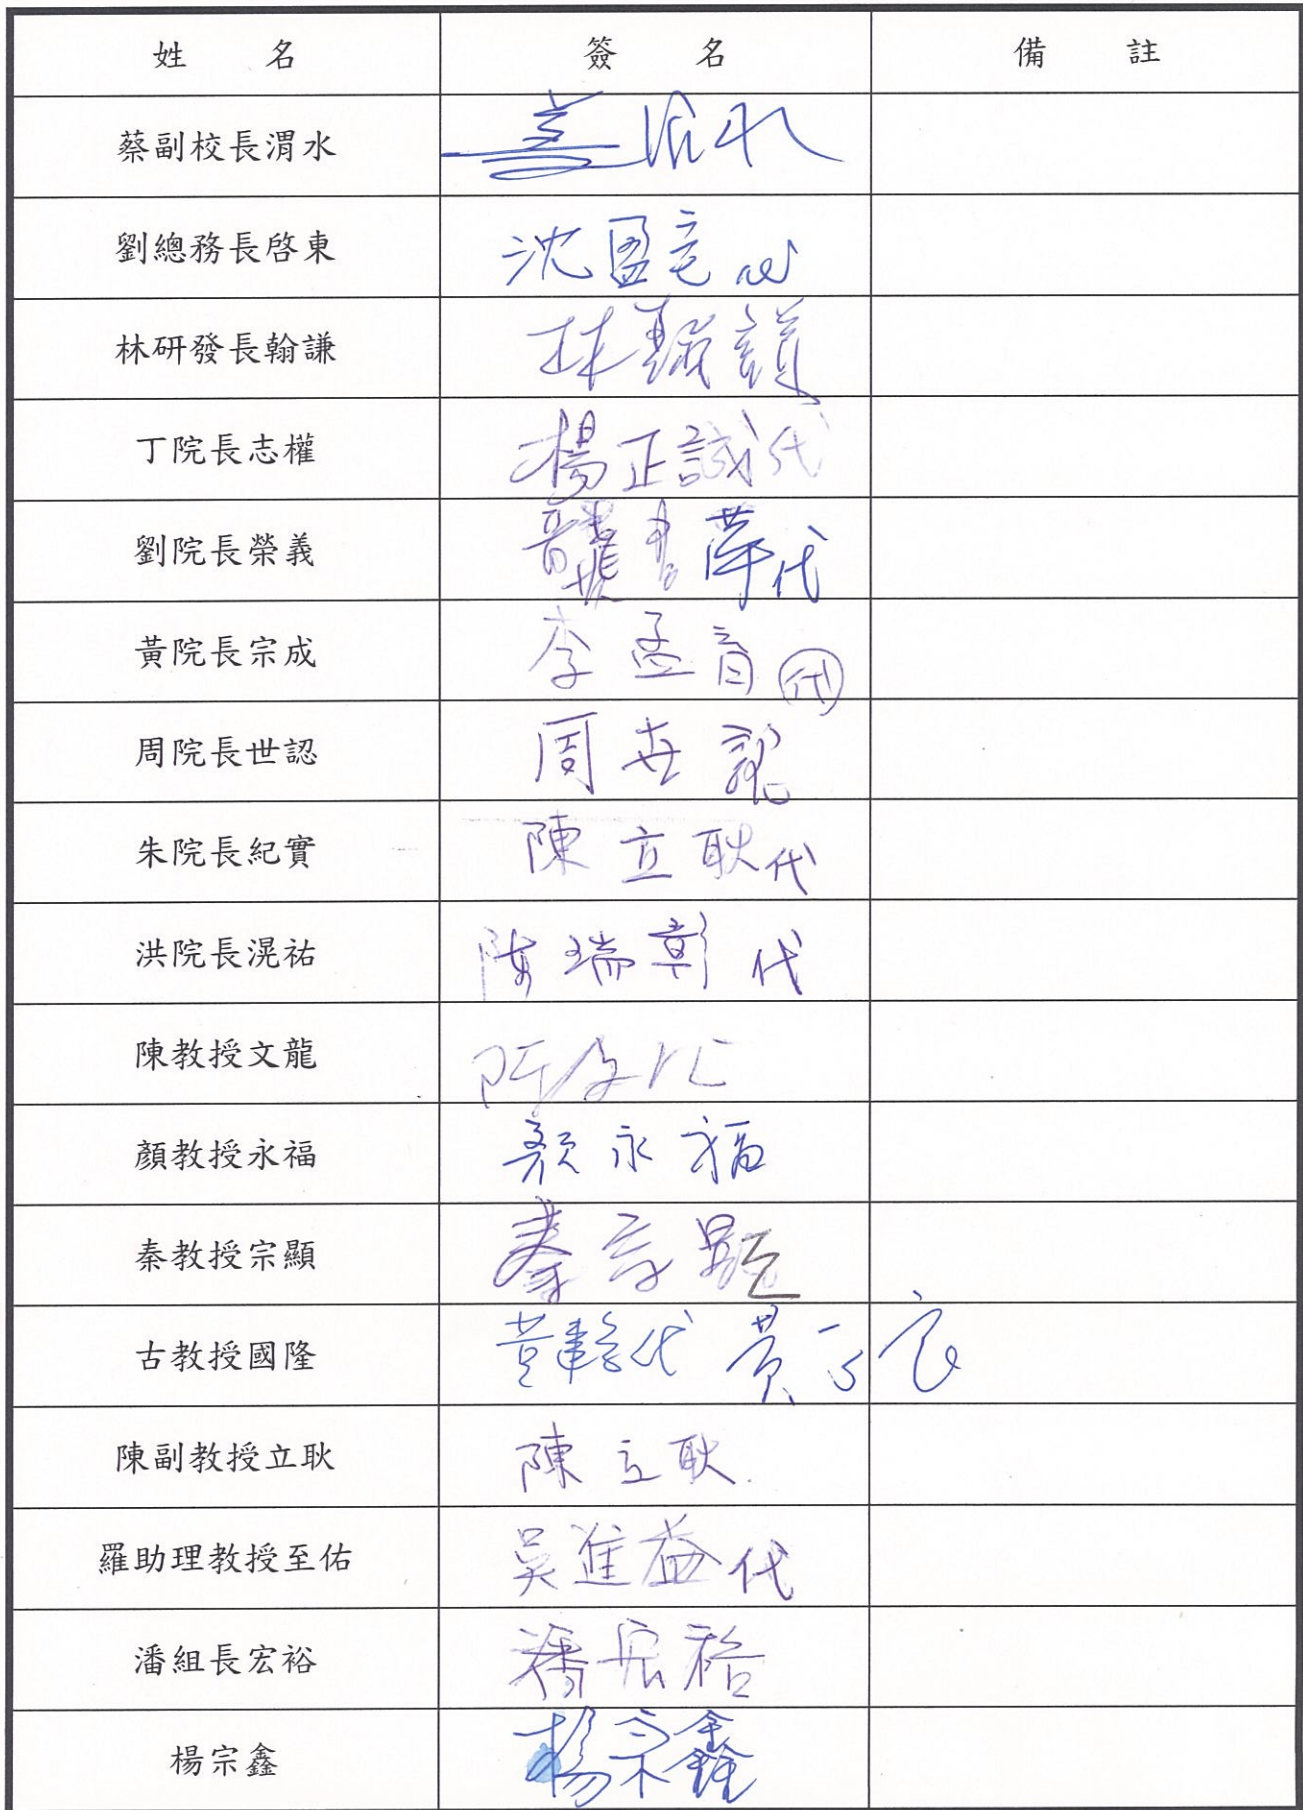 姓 名 簽 名 備 註
蔡副校長渭水
劉總務長啓東 沈盈宅 代
林研發長翰謙 林翰謙
丁院長志權 楊正誠代
劉院長榮義 龔書萍代
黃院長宗成 李孟育 代
周院長世認 周世認
朱院長紀實 陳立耿代
洪院長滉祐 陳瑞彰 代
陳教授文龍 陳文龍
顏教授永福 顏永福
秦教授宗顯 秦宗顯
古教授國隆 代 黃
陳副教授立耿 陳立耿
羅助理教授至佑 吳進益代
潘組長宏裕 潘宏裕
楊宗鑫 楊宗鑫